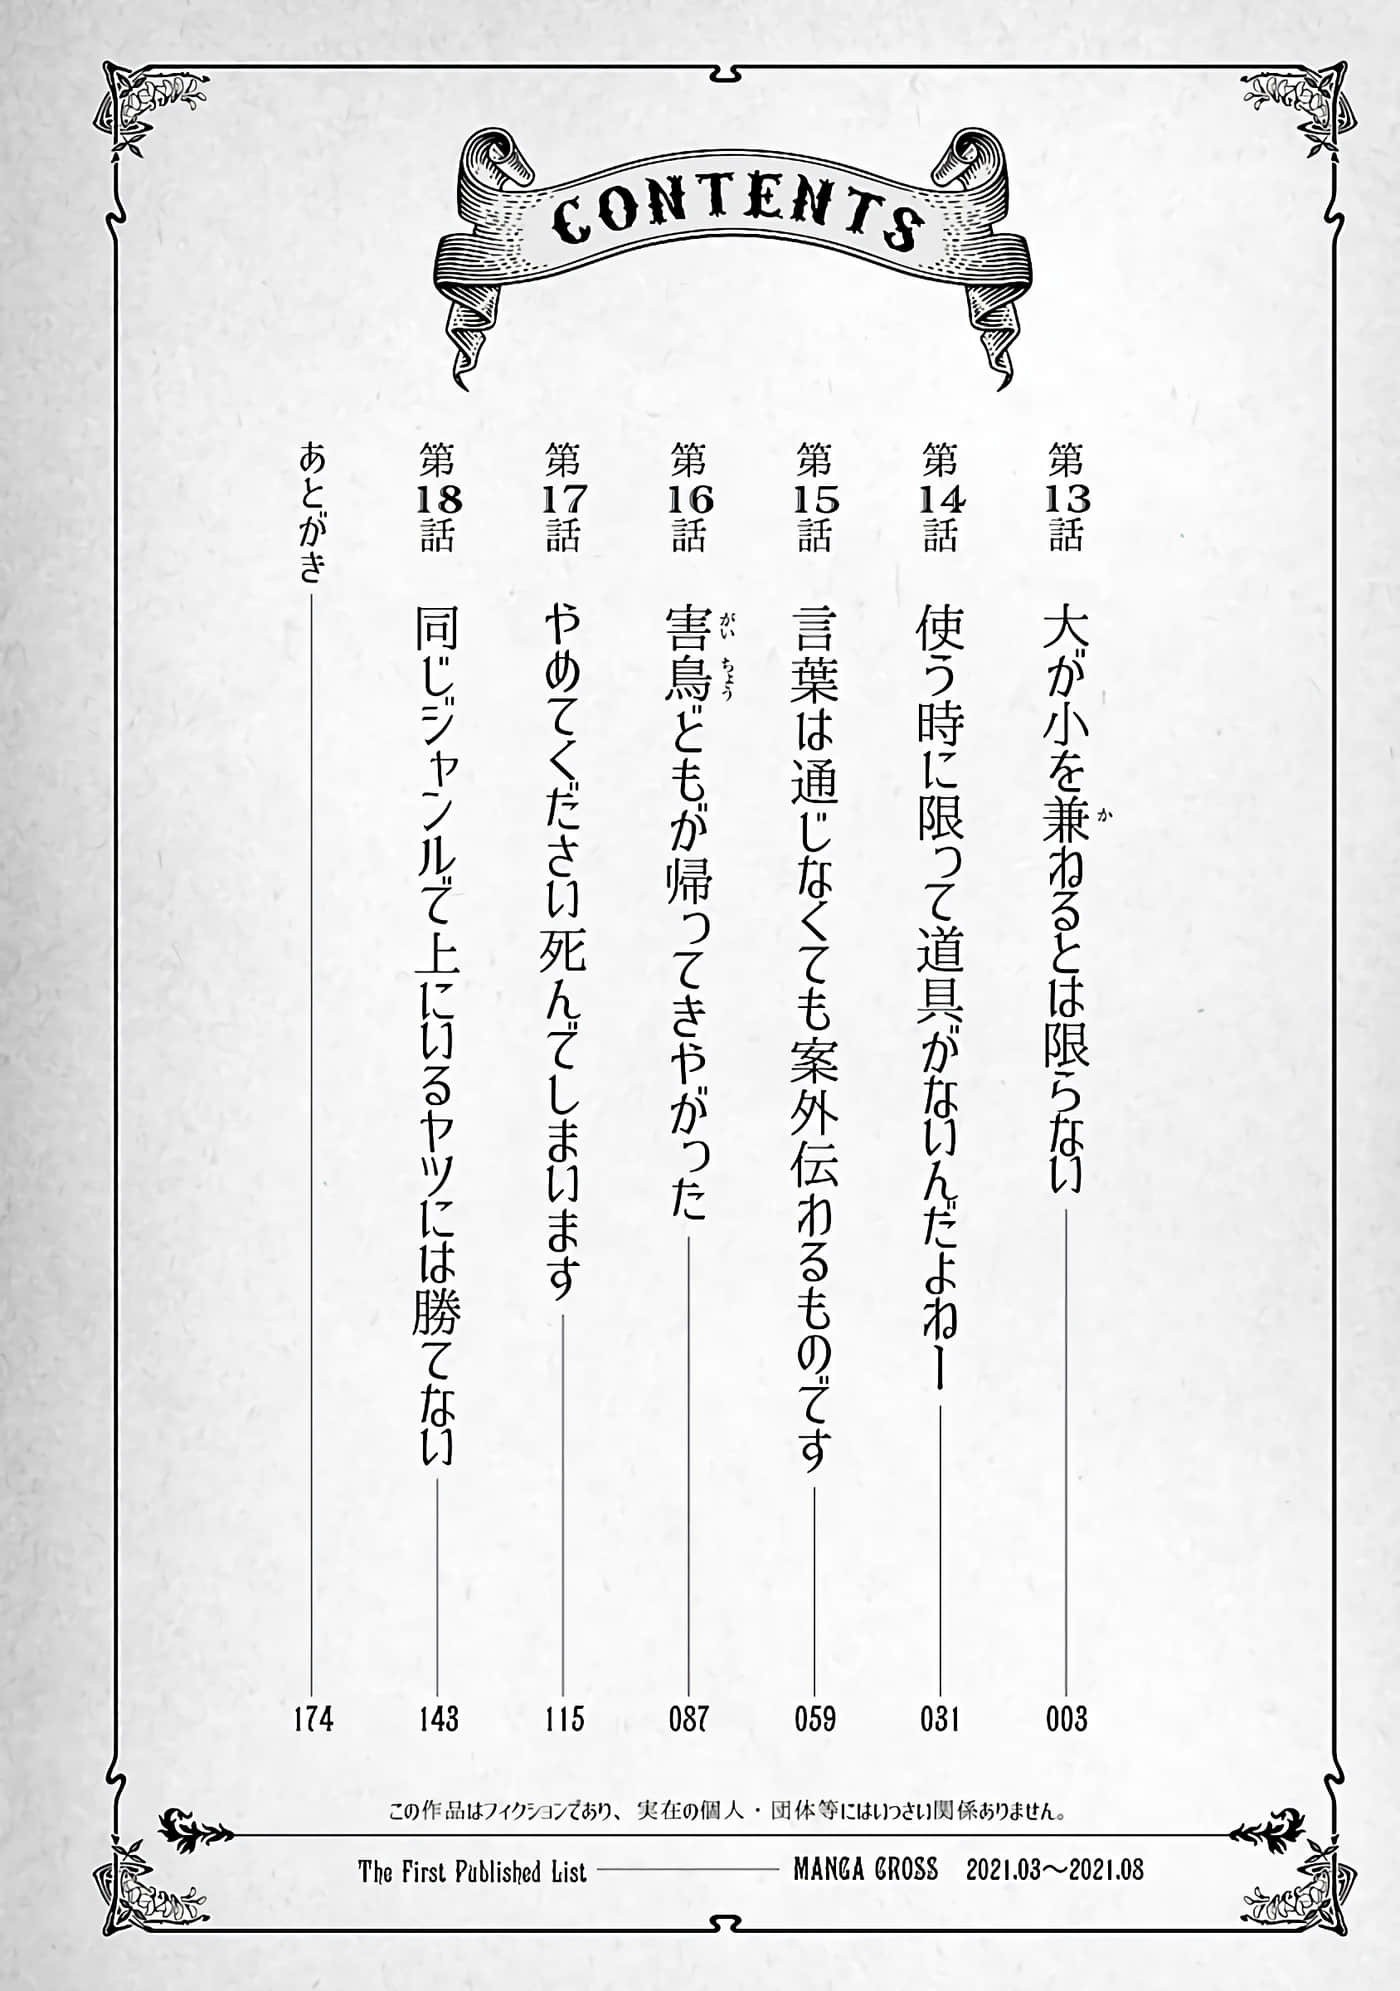 CONTENTS
第13話 大が小を兼ねるとは限らない 003
か
第14話 使う時に限って道具がないんだよねー 031
第15話 言葉は通じなくても案外伝わるものです 059
第16話 害鳥どもが帰ってきやがった 087
がい ちょう
第17話 やめてください死んでしまいます 115
第18話 同じジャンルで上にいるヤツには勝てない 143
あとがき 174
この作品はフィクションであり、実在の個人・団体等にはいっさい関係ありません。
The First Published List MANGA CROSS 2021.03〜2021.08